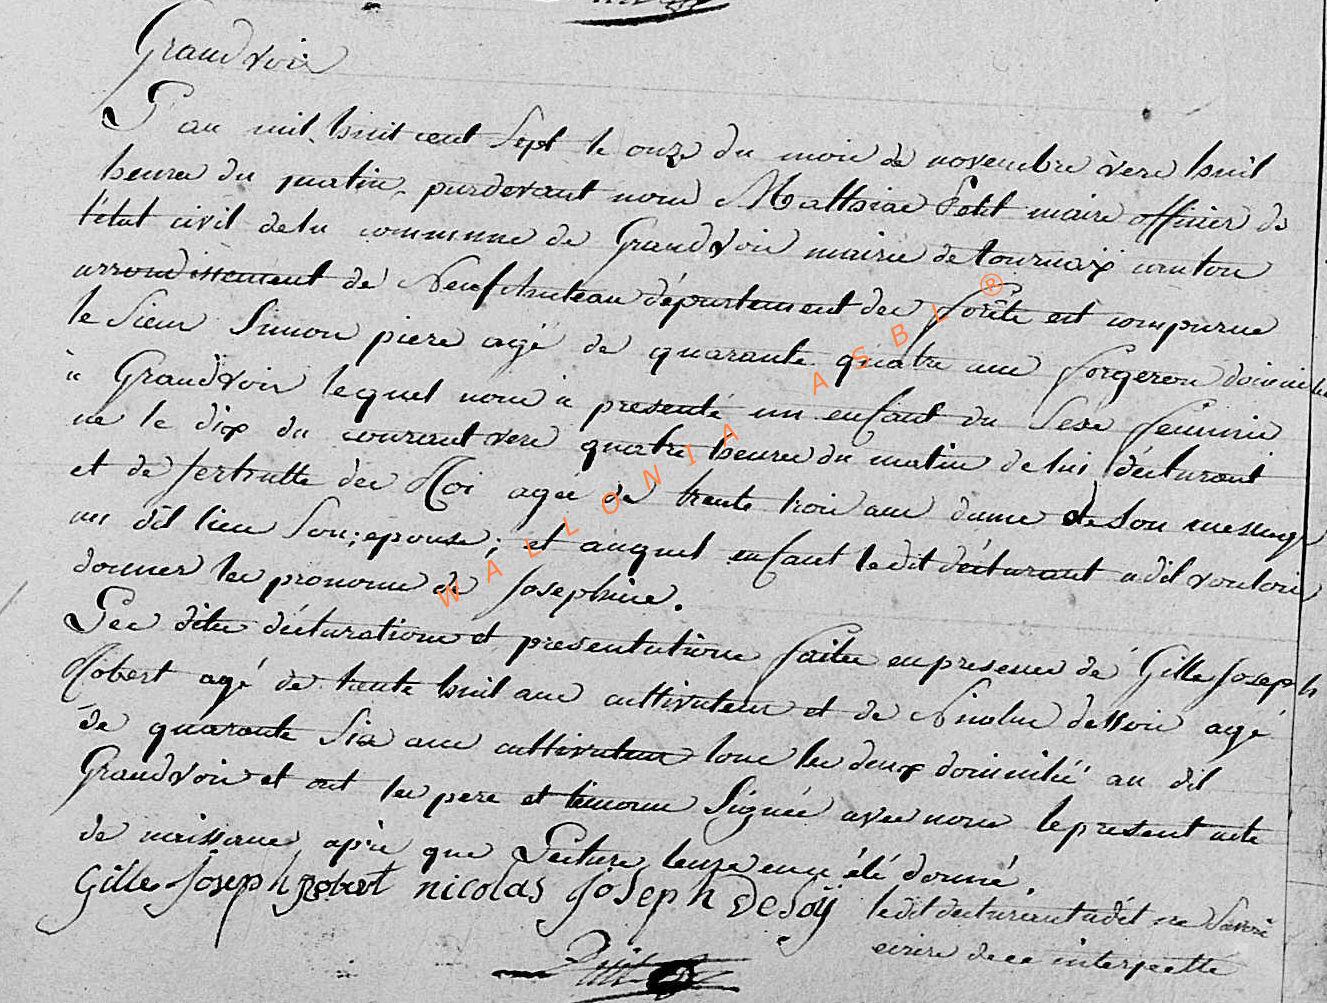 Grandvoir
L'an mil huit cent sept le onze du mois de novembre vers huit
heures du matin pardevant nous Matthias Petit maire officier de
l'état civil de la commune de Grandvoir mairie de tournaix canton
arrondissement de Neufchateau département des forêts est comparue
le Sieur Simon piere agé de quarante quatre ans forgeron domicilié
a Grandvoir lequel nous a presenté un enfant du Sexe feminin
né le dix du courant vers quatre heures du matin de lui déclarant
et de Jertrutte des Roi agée de trente trois ans dame de son mesnage
au dit lieu Son epouse; et auquel enfant le dit déclarant a dit vouloir
donner les pronoms de Josephine.
Les dites déclarations et presentations faites en presence de Gille Joseph
Robert agé de trente huit ans cultivateur et de Nicolas dessoi agé
de quarante Six ans cultivateur tous les deux domiciliés au dit
Grandvoir et ont les pere et temoins Signés avec nous le present acte
de naissance après que Lecture leurs en a été donné.
Gille Joseph Robert nicolas Joseph DeSoÿ le dit déclarant a dit ne Savoir
ecrire de ce interpellé
Petit
WALLONIA ASBL ®